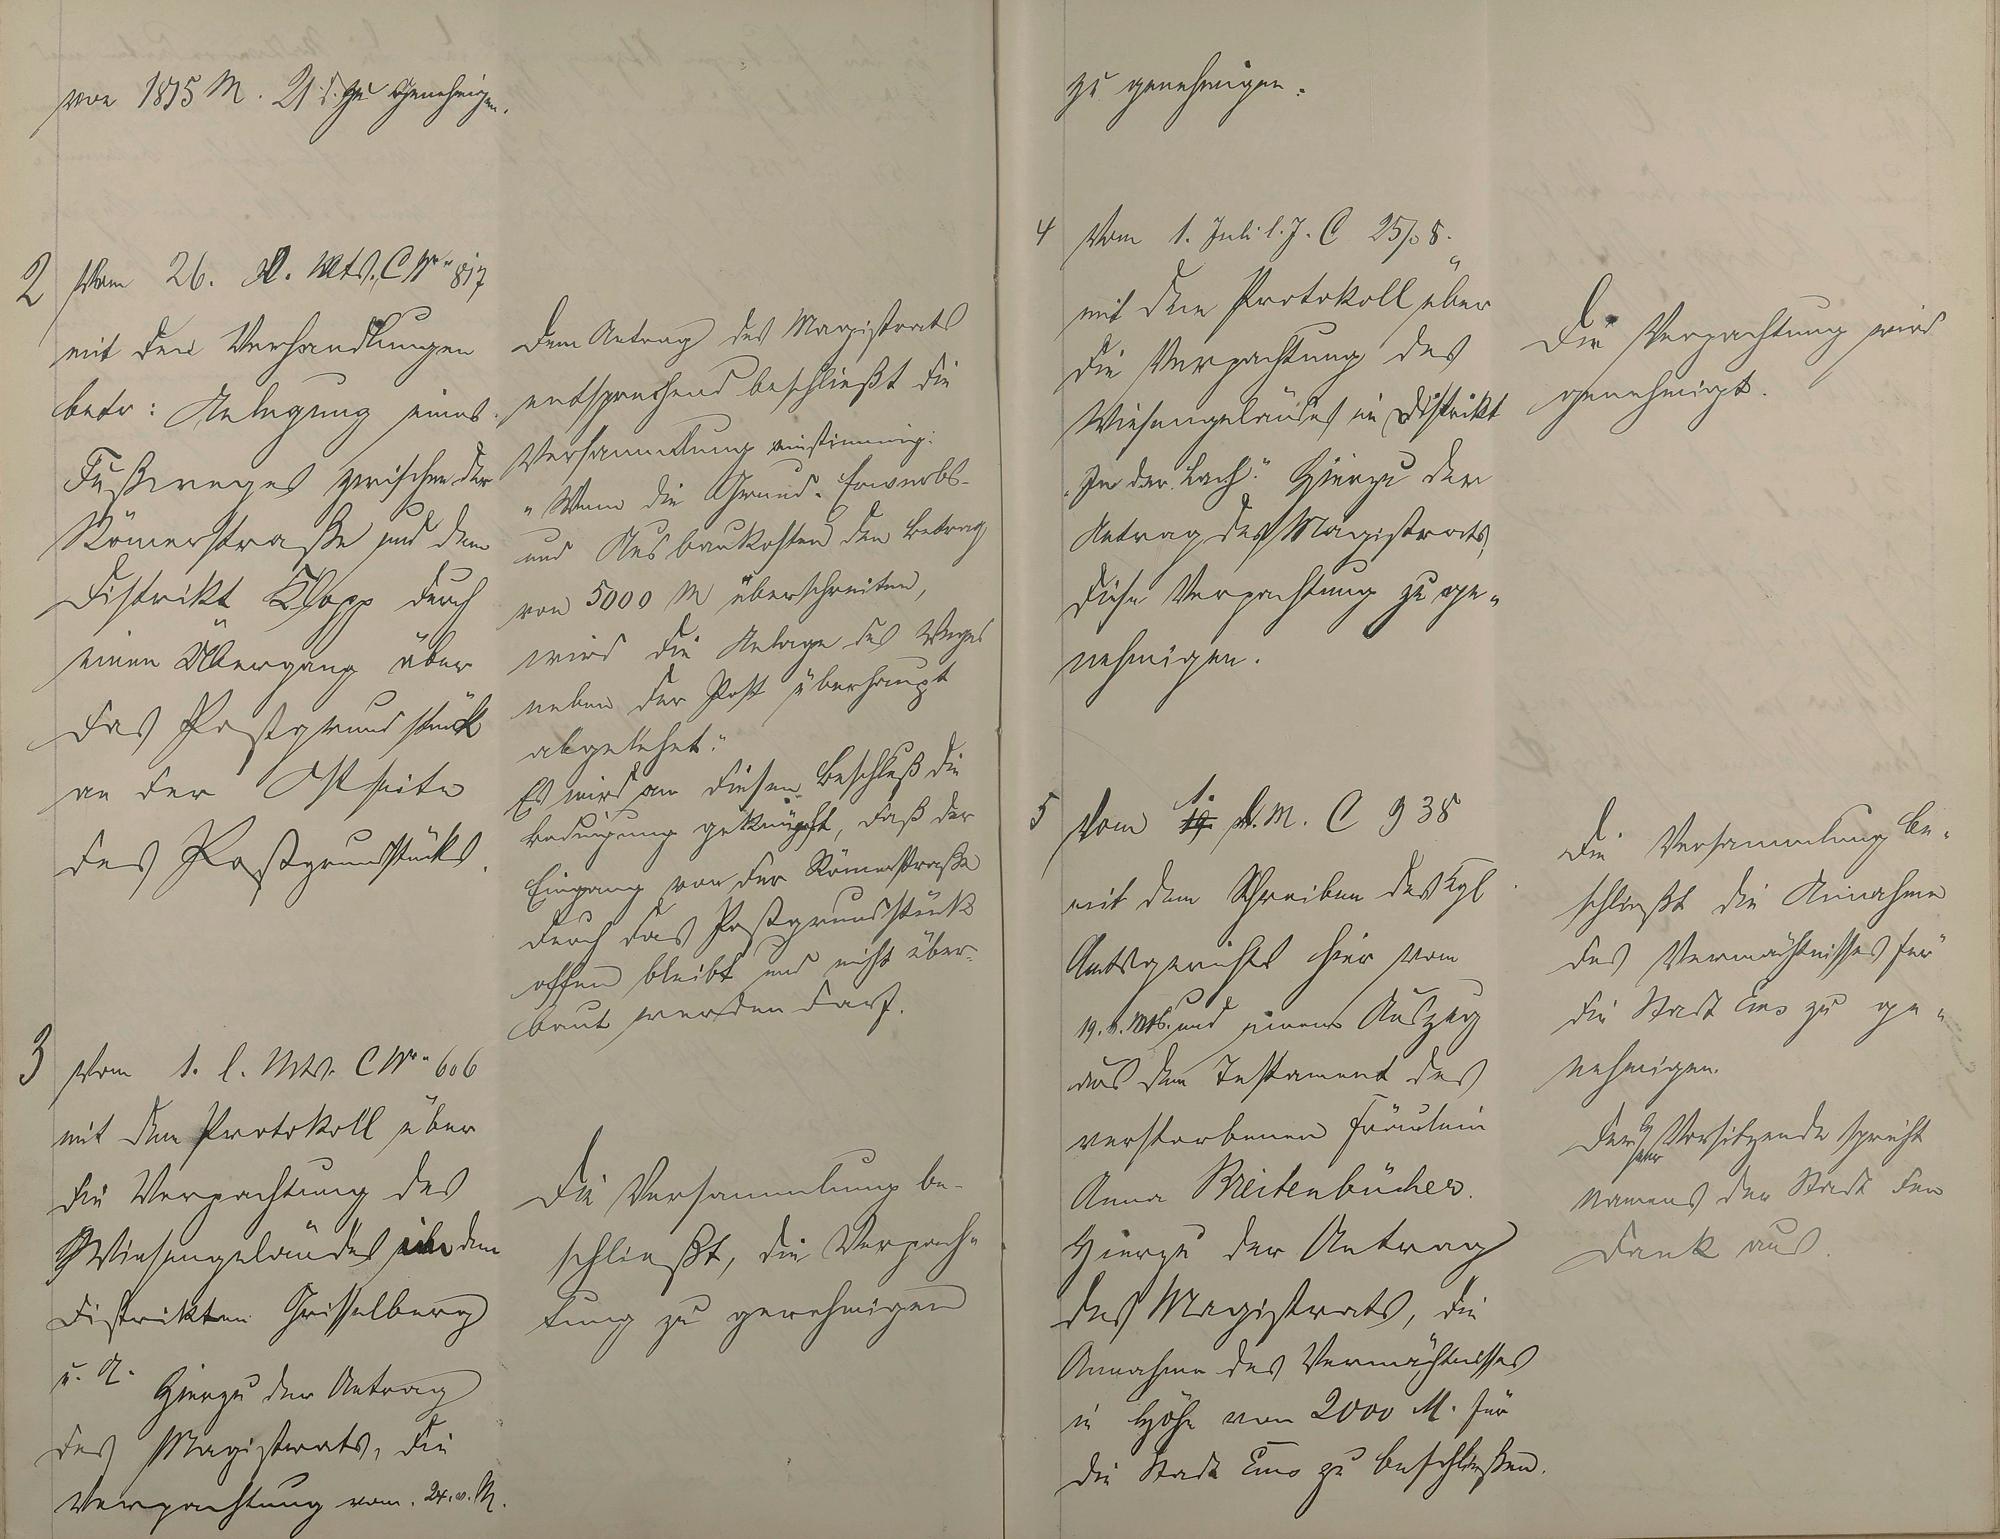 von 1875 M. 21 d. zu genehmigen.
2 Vom 26. v. Mts. C Nr. 817
mit den Verhandlungen
betr: Anlegung eines
Fußweges zwischen der
Römerstraße und dem
Distrikt Klopp durch
einen Übergang über
das Postgrundstück
an der Ostseite
des Postgrundstücks.
Dem Antrag des Magistrats
entsprechend beschließt die
Versammlung einstimmig:
"Wenn die Grund-Erwerbs-
und Ausbaukosten den Betrag
von 5000 M überschreiten,
wird die Anlage des Weges
neben der Post überhaupt
abgelehnt."
Es wird an diesen Beschluß die
Bedingung geknüpft, daß der
Eingang von der Römerstraße
durch das Postgrundstück
offen bleibt und nicht über-
baut werden darf.
3 Vom 1. l. Mts. C Nr. 606
mit dem Protokoll über
die Verpachtung des
Wiesengeländes in den
Distrikten Grisselberg
u. A. Hierzu der Antrag
des Magistrats, die
Verpachtung vom 24. v. M.
Die Versammlung be-
schließt, die Verpach-
tung zu genehmigen
zu genehmigen.
4 Vom 1. Juli l. J. C 25/08.
mit dem Protokoll über
die Verpachtung des
Wiesengeländes im Distrikt
"In der Bach." Hierzu der
Antrag des Magistrats,
diese Verpachtung zu ge-
nehmigen.
Die Verpachtung wird
genehmigt.
5 Vom 1. d. M. C 938
mit dem Schreiben des Kgl
Amtsgerichts hier vom
19. v. Mts. und einem Auszug
aus dem Testament des
verstorbenen Fräulein
Anna Breitenbücher.
Hierzu der Antrag
des Magistrats, die
Annahme des Vermächtnisses
in Höhe von 2000 M. für
die Stadt Ems zu beschließen.
Die Versammlung be-
schließt die Annahme
des Vermächtnisses für
die Stadt Ems zu ge-
nehmigen.
Der Vorsitzende spricht
namens der Stadt den
Dank aus.